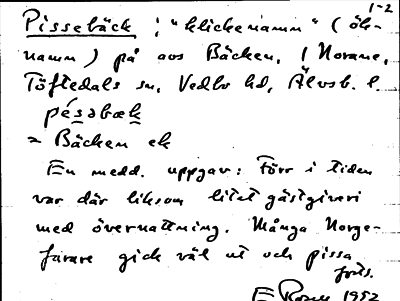 1-2
Pissebäck : "klickenamn" (ök-
namn) på aos Bäcken, i Norane,
Töftedals sn, Vedbo hd, Älvsb. l.
péssbæk
= Bäcken ek
En medd. uppgav: Förr i tiden
var där liksom litet gästgiveri
med övernattning. Många Norge-
farare gick väl ut och pissa
forts.
1952